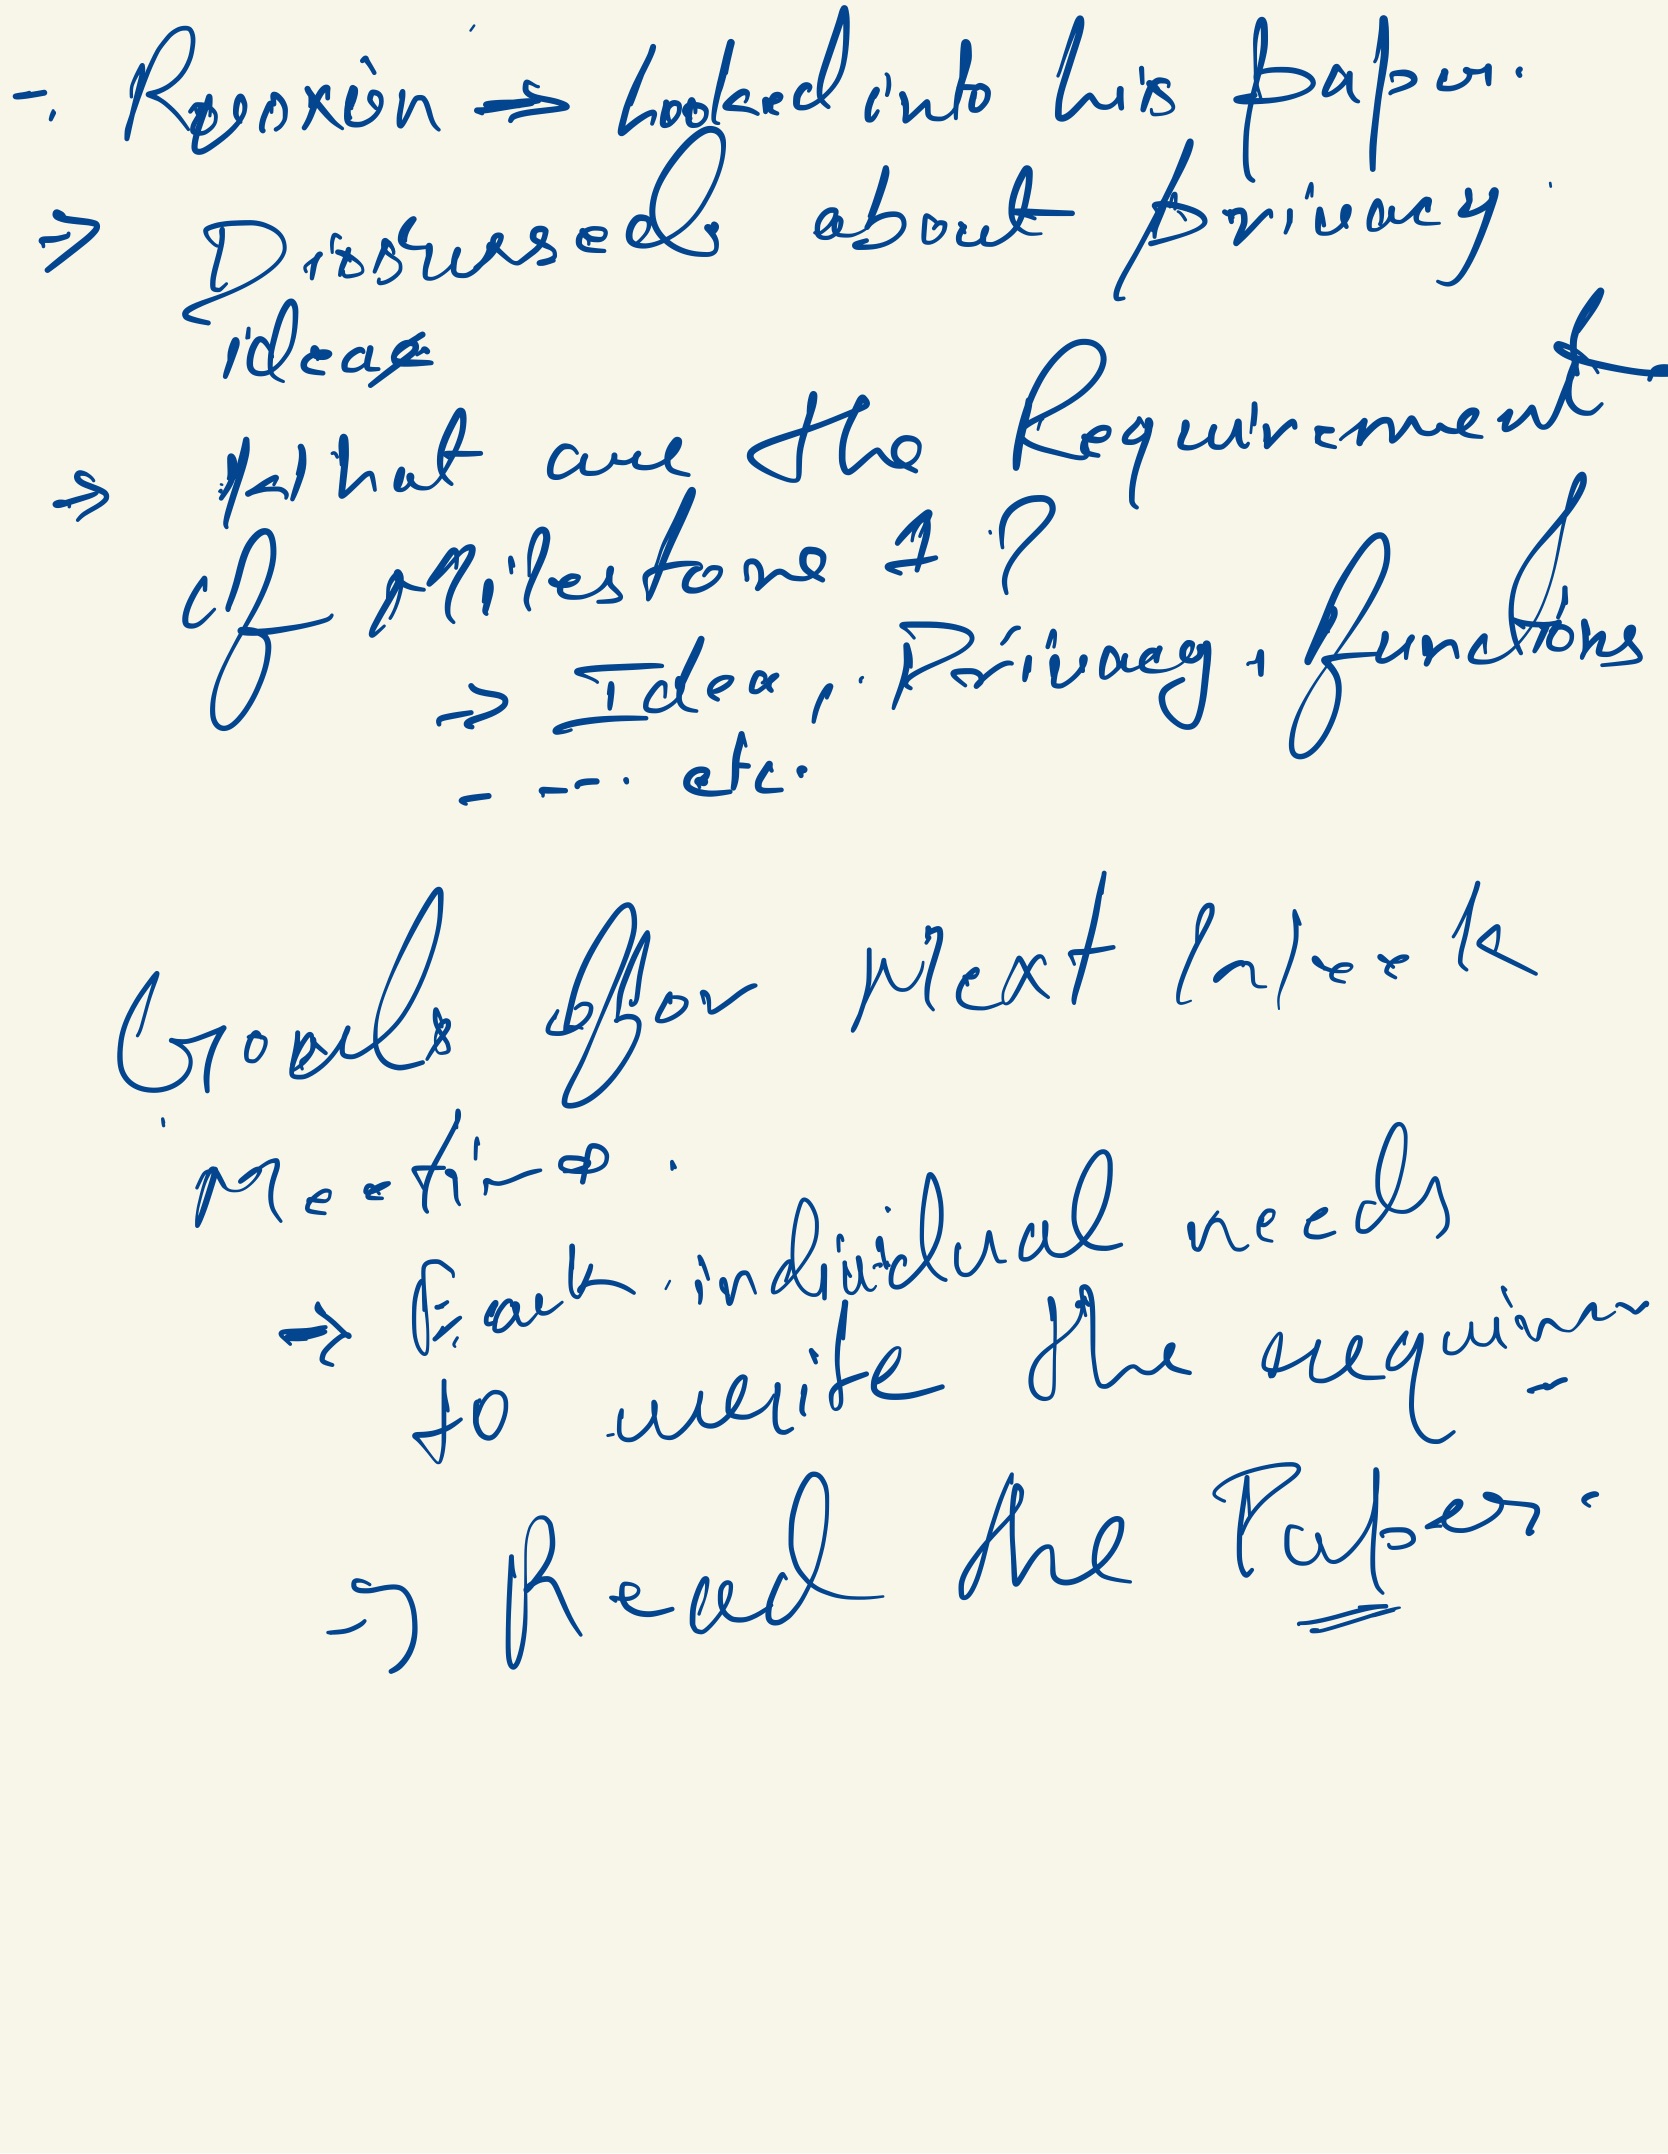 -. → Looked into his paper.
⇒ Discussed about privacy
ideas
⇒ What are the Requirement
of Milestone 1 ?
⇒ Idea, Privacy, functions
- - - . etc.
Goals for Next Week
Meeting.
→ Each individual needs
to write the requirm
⇒ Read the Paper.